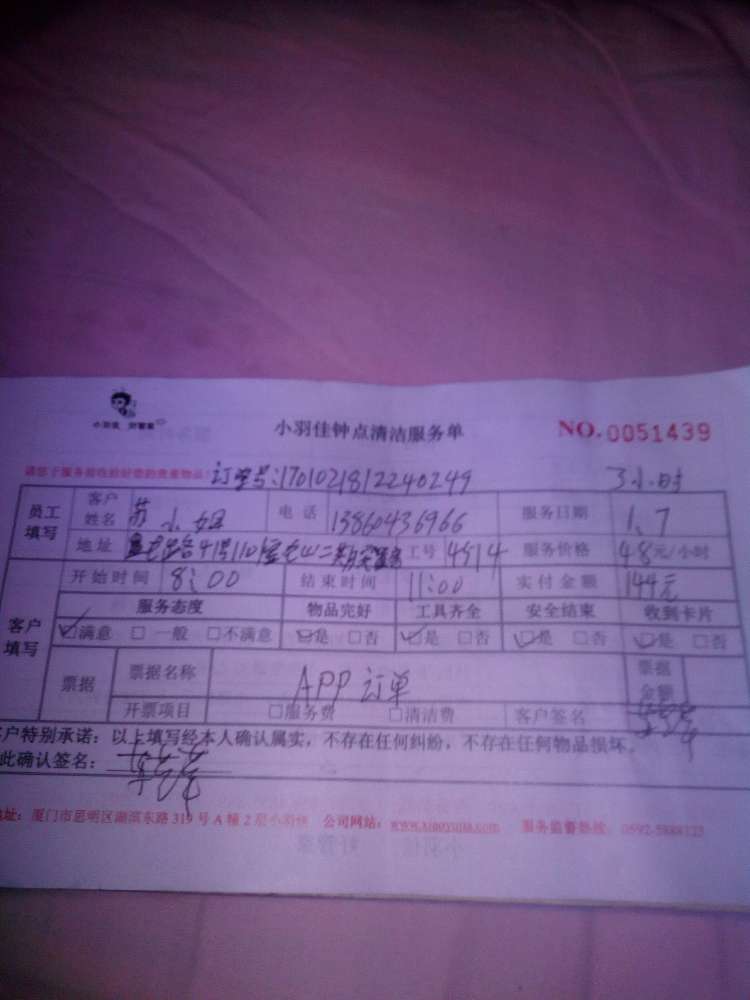 小羽佳 好管家
小羽佳钟点清洁服务单 NO.0051439
请您于服务前收好您的贵重物品! 订单号:1701021812240249 3小时
员工填写 客户姓名 苏小姐 电话 13860436966 服务日期 1.7
地址 41号1101 二期 工号 4914 服务价格 48元/小时
客户填写 开始时间 8:00 结束时间 11:00 实付金额 144元
服务态度 物品完好 工具齐全 安全结束 收到卡片
☑满意 □一般 □不满意 ☑是 □否 ☑是 □否 ☑是 □否 ☑是 □否
票据 票据名称 APP订单 票据金额
开票项目 □服务费 □清洁费 客户签名
客户特别承诺：以上填写经本人确认属实，不存在任何纠纷，不存在任何物品损坏。
此确认签名：
地址：厦门市思明区湖滨东路319号A幢2层小羽佳 公司网站：www.xiaoyujia.com 服务监督热线：0592-